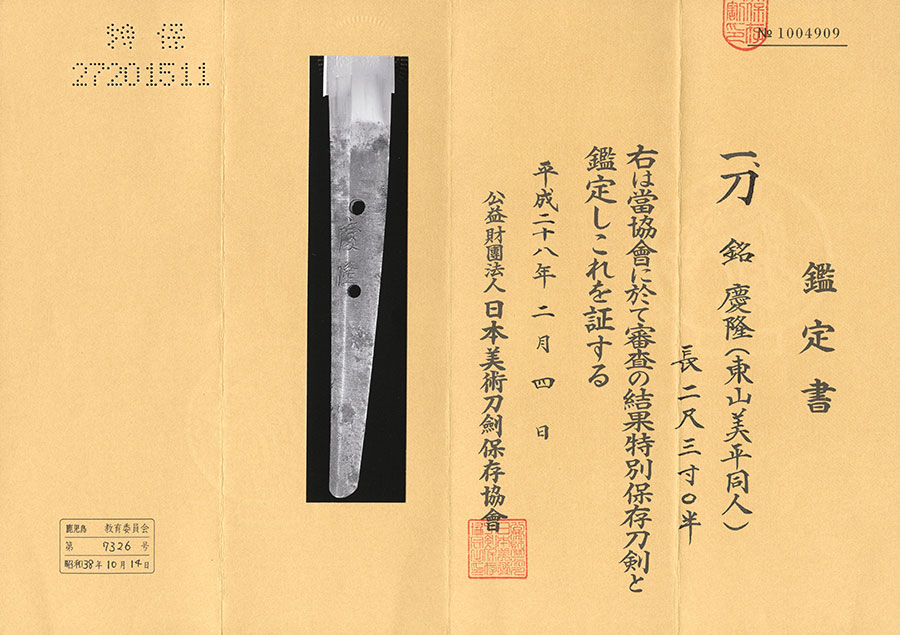 № 1004909
鑑定書
一、刀 銘 慶隆(東山美平同人)
長二尺三寸〇半
右は當協會に於て審査の結果特別保存刀剣と
鑑定しこれを証する
平成二十八年二月四日
公益財團法人日本美術刀劍保存協會
慶隆
特保
27201511
鹿児島 教育委員会
第 7326 号
昭和38年10月14日